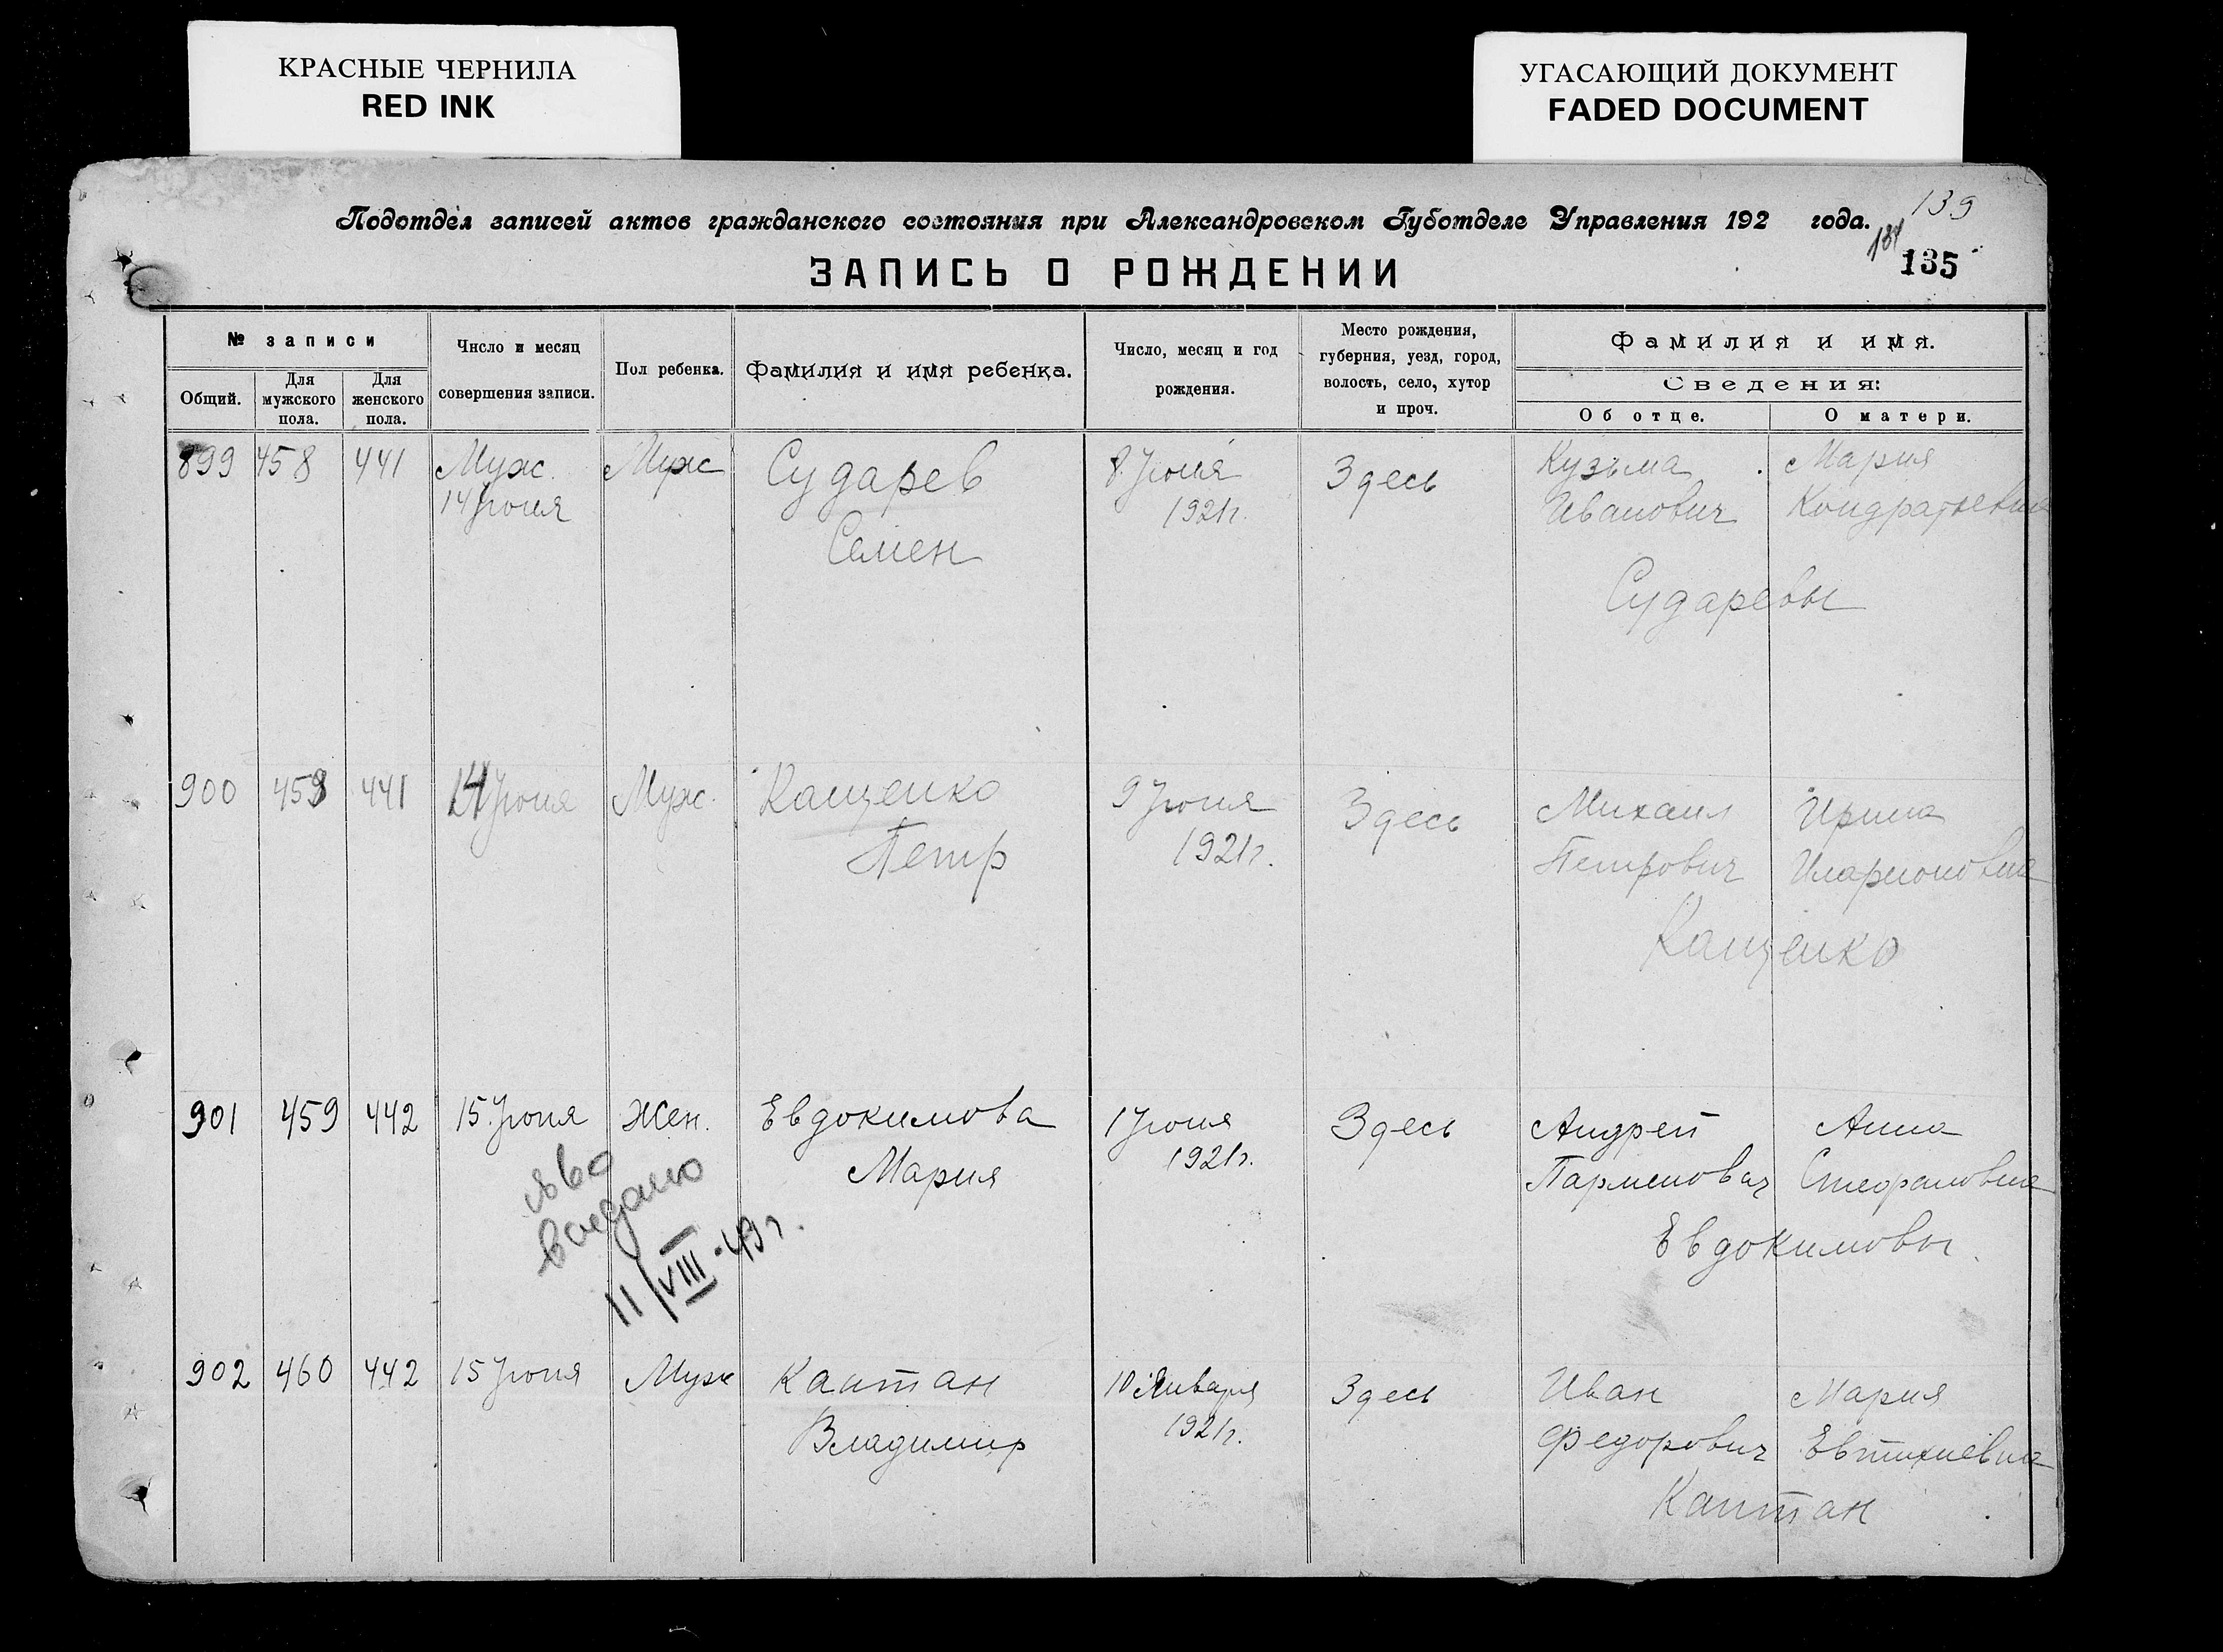 КРАСНЫЕ ЧЕРНИЛА
RED INK
УГАСАЮЩИЙ ДОКУМЕНТ
FADED DOCUMENT
139
Подотдел записей актов гражданского состояния при Александровском Губотделе Управления 192 года.
134
135
ЗАПИСЬ О РОЖДЕНИИ
№ записи
Общий.
Для мужского пола.
Для женского пола.
Число и месяц
совершения записи.
Пол ребенка.
Фамилия и имя ребенка.
Число, месяц и год
рождения.
Место рождения,
губерния, уезд, город,
волость, село, хутор
и проч.
Фамилия и имя.
Сведения:
Об отце.
О матери.
899 458 441 Муж. Муж Сударев 8 Июня Здесь Кузьма Мария
14 Июня 1921г. Иванович Кондратьевна
Семен
Сударевы
900 459 441 14 Июня Муж. Кащенко 9 Июня Здесь Михаил Ирина
Петр 1921г. Петрович Иларионовна
Кащенко
901 459 442 15 Июня Жен. Евдокимова 1 Июня Здесь Андрей Анна
Мария 1921г. Парменович Стефановна
Евдокимовы
выдано
11/VIII-49г.
902 460 442 15 Июня Муж Каптан 10 Января Здесь Иван Мария
Владимир 1921г. Федорович Евтихиевна
Каптан